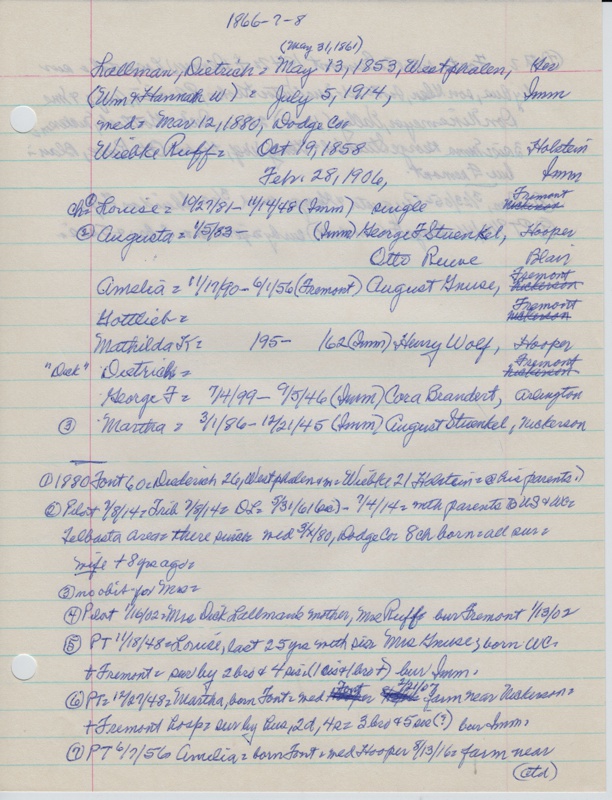 1866-7-8
(May 31, 1861)
Lallman, Dietrich = May 13, 1853, Westphalen, Ger
(Wm & Hannah W) July 5, 1914, Imm
med = Mar 12, 1880, Dodge Co =
Wiebke Ruff = Oct 19, 1858 Holstein
Feb. 28, 1906, Imm
ch = ① Louise = 10/27/81 - 11/14/48 (Imm) single Fremont Nickerson
② Augusta = 1/5/83 - (Imm) George F Stuenkel, Hooper
Otto Blair
Amelia = 11/17/90 - 6/1/56 (Fremont) August Gnuse, Fremont Nickerson
Gottlieb = Fremont Nickerson
Mathilda K = 195- 162 (Imm) Henry Wolf, Hooper
"Dick" Dietrich = Fremont Nickerson
George F = 7/4/99 - 9/5/46 (Imm) Cora Brandert, Arlington
③ Martha = 3/1/86 - 12/21/45 (Imm) August Stuenkel, Nickerson
① 1880 Font 60 = Diederich 26, Westphalen + m = Wiebke 21 Holstein = @ his parents.)
② Pilot 7/8/14 = Trib 7/8/14 = OL = 5/31/61 (sic) - 7/4/14 = with parents to US & WC =
Telbasta area = there since med 3/12/80, Dodge Co = 8 ch born = all sur =
wife + 8 yrs ago =
③ no obit for Mrs =
④ Pilot 1/16/02 = Mrs Dick Lallman's mother, Mrs Ruff bur Fremont 1/13/02
⑤ PT 11/18/48 = Louise, last 25 yrs with sis Mrs Gnuse; born WC =
+ Fremont = sur by 2 bro & 4 sis (1 sis + 1 bro +) bur Imm.
⑥ PT = 12/27/48 = Martha, born Font = med 2/21/07 farm near Nickerson =
+ Fremont hosp = sur by hus, 2d, 4s = 3 bro & 5 sis (?) bur Imm.
⑦ PT 6/7/56 Amelia = born Font = med Hooper 8/13/16 = farm near
(ctd)